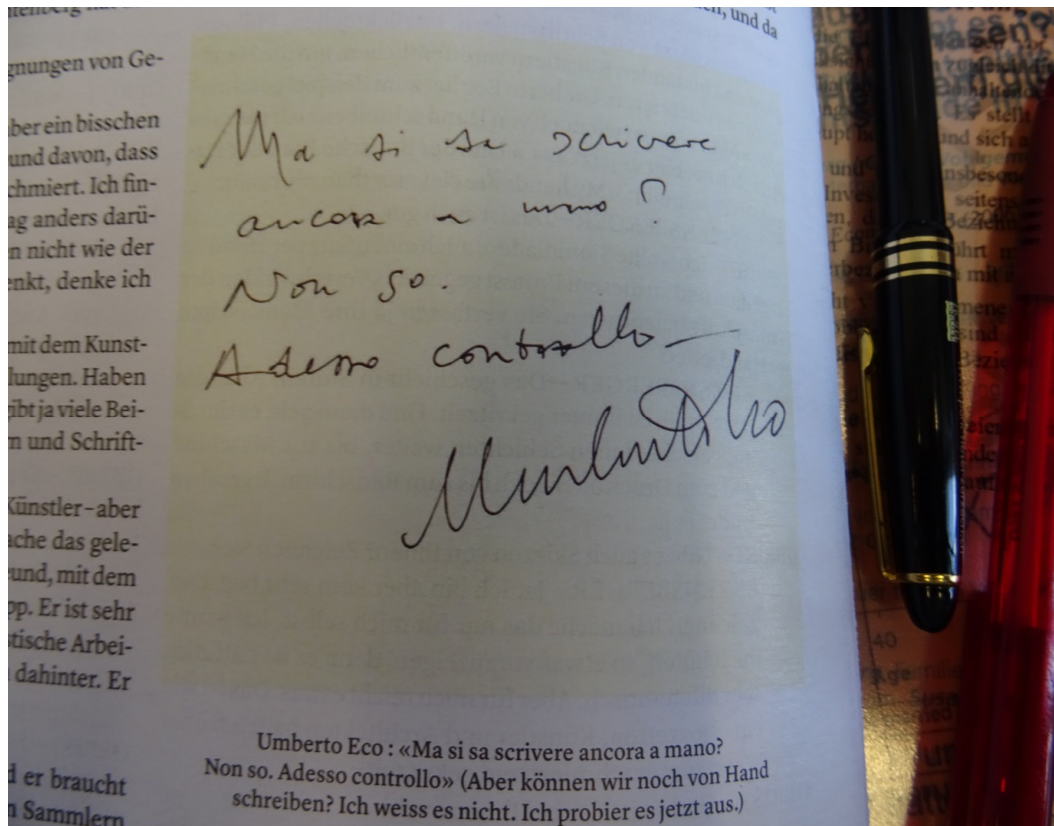 gnungen von Ge-
ber ein bisschen
und davon, dass
chmiert. Ich fin-
ag anders darü-
n nicht wie der
enkt, denke ich
mit dem Kunst-
lungen. Haben
gibt ja viele Bei-
n und Schrift-
Künstler – aber
ache das gele-
und, mit dem
pp. Er ist sehr
stische Arbei-
dahinter. Er
d er braucht
n Sammlern
en, und da
Ma si sa scrivere
ancora a mano?
Non so.
Adesso controllo
Umberto Eco
Umberto Eco : «Ma si sa scrivere ancora a mano?
Non so. Adesso controllo» (Aber können wir noch von Hand
schreiben? Ich weiss es nicht. Ich probier es jetzt aus.)
Es stellt
und sich a
und
seitens
führt
mit
40